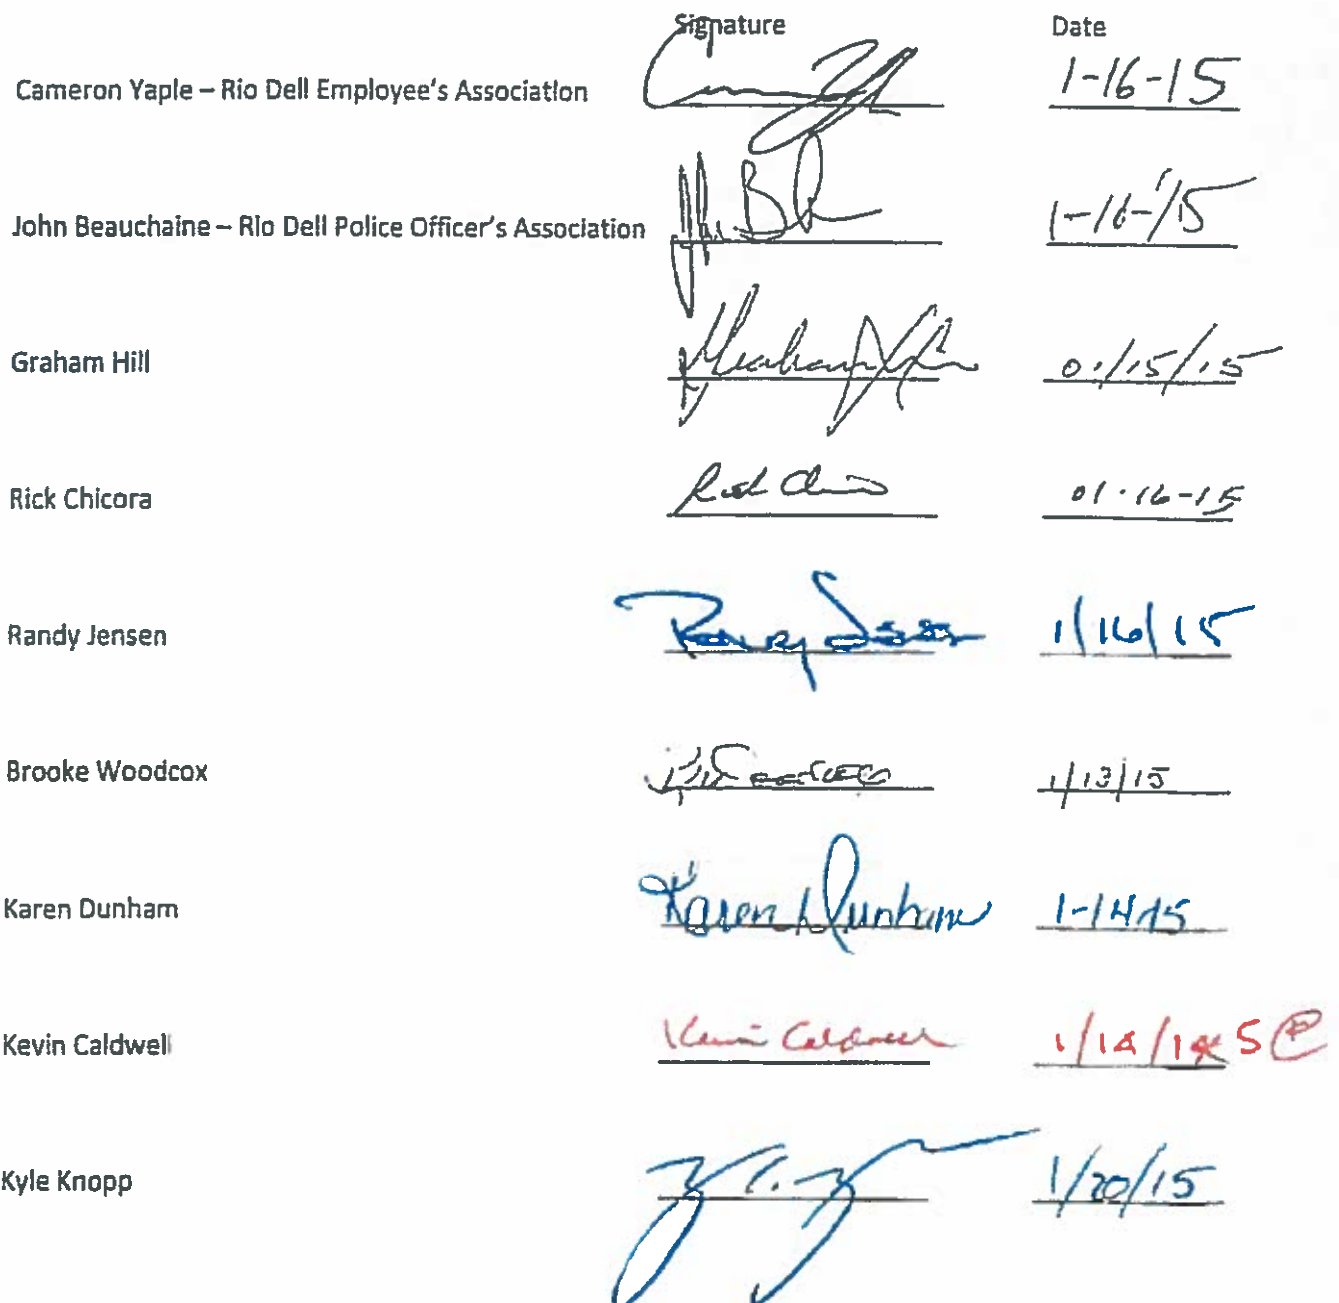 Signature Date
Cameron Yaple – Rio Dell Employee's Association 1-16-15
John Beauchaine – Rio Dell Police Officer's Association 1-16-15
Graham Hill Graham Hill 01/15/15
Rick Chicora 01-16-15
Randy Jensen Randy Jensen 1/16/15
Brooke Woodcox B Woodcox 1/13/15
Karen Dunham Karen Dunham 1-14-15
Kevin Caldwell Kevin Caldwell 1/14/14 5
Kyle Knopp 1/20/15